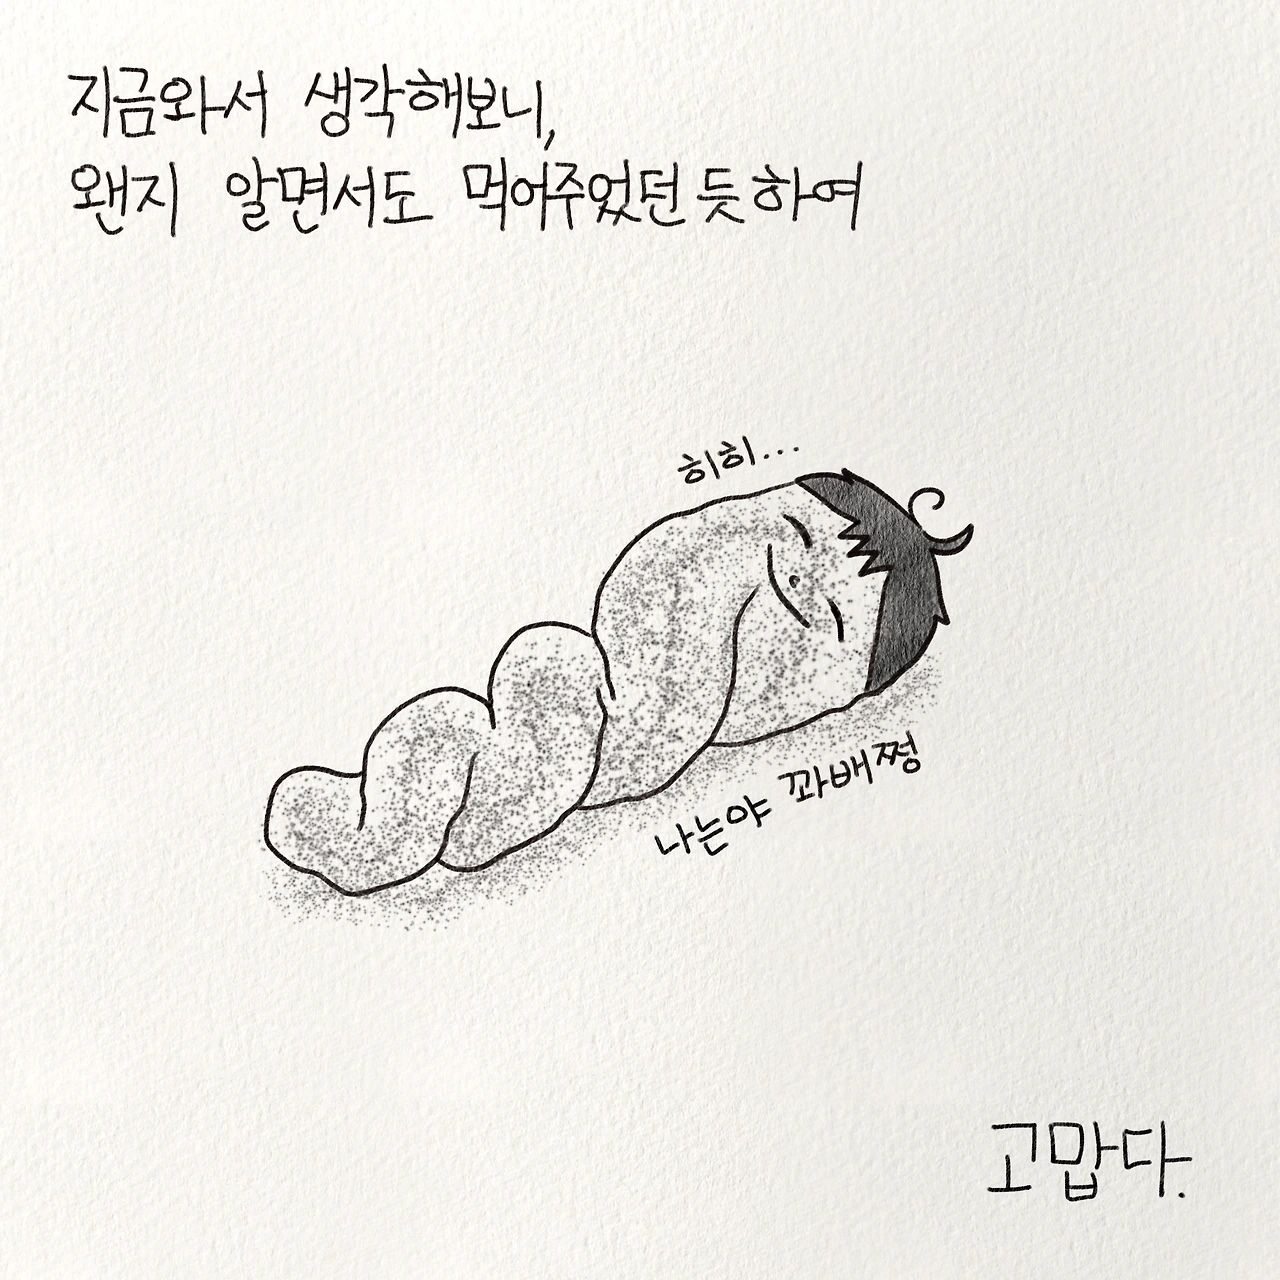 지금와서 생각해보니,
왠지 알면서도 먹어주었던 듯 하여
히히...
나는야 꽈배쩡
고맙다.